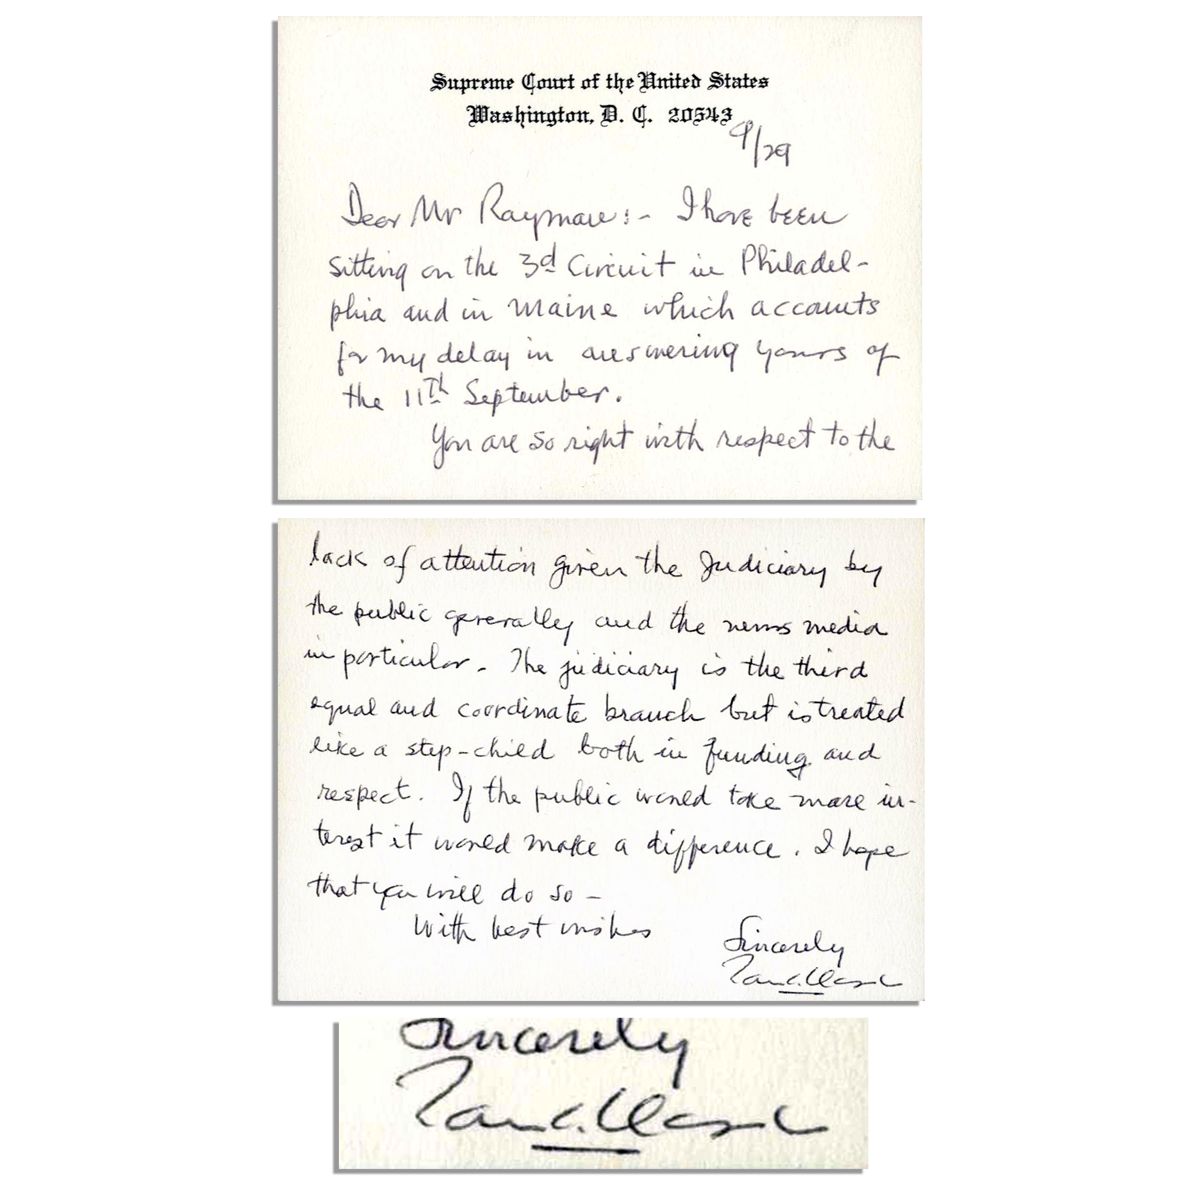 Supreme Court of the United States
Washington, D. C. 20543
9/29
Dear Mr Rayman:- I have been
sitting on the 3d Circuit in Philadel-
phia and in Maine which accounts
for my delay in answering yours of
the 11th September.
You are so right with respect to the
lack of attention given the Judiciary by
the public generally and the news media
in particular. The judiciary is the third
equal and coordinate branch but is treated
like a step-child both in funding and
respect. If the public would take more in-
terest it would make a difference. I hope
that you will do so -
With best wishes
Sincerely
Tom C. Clark
Sincerely
Tom C. Clark